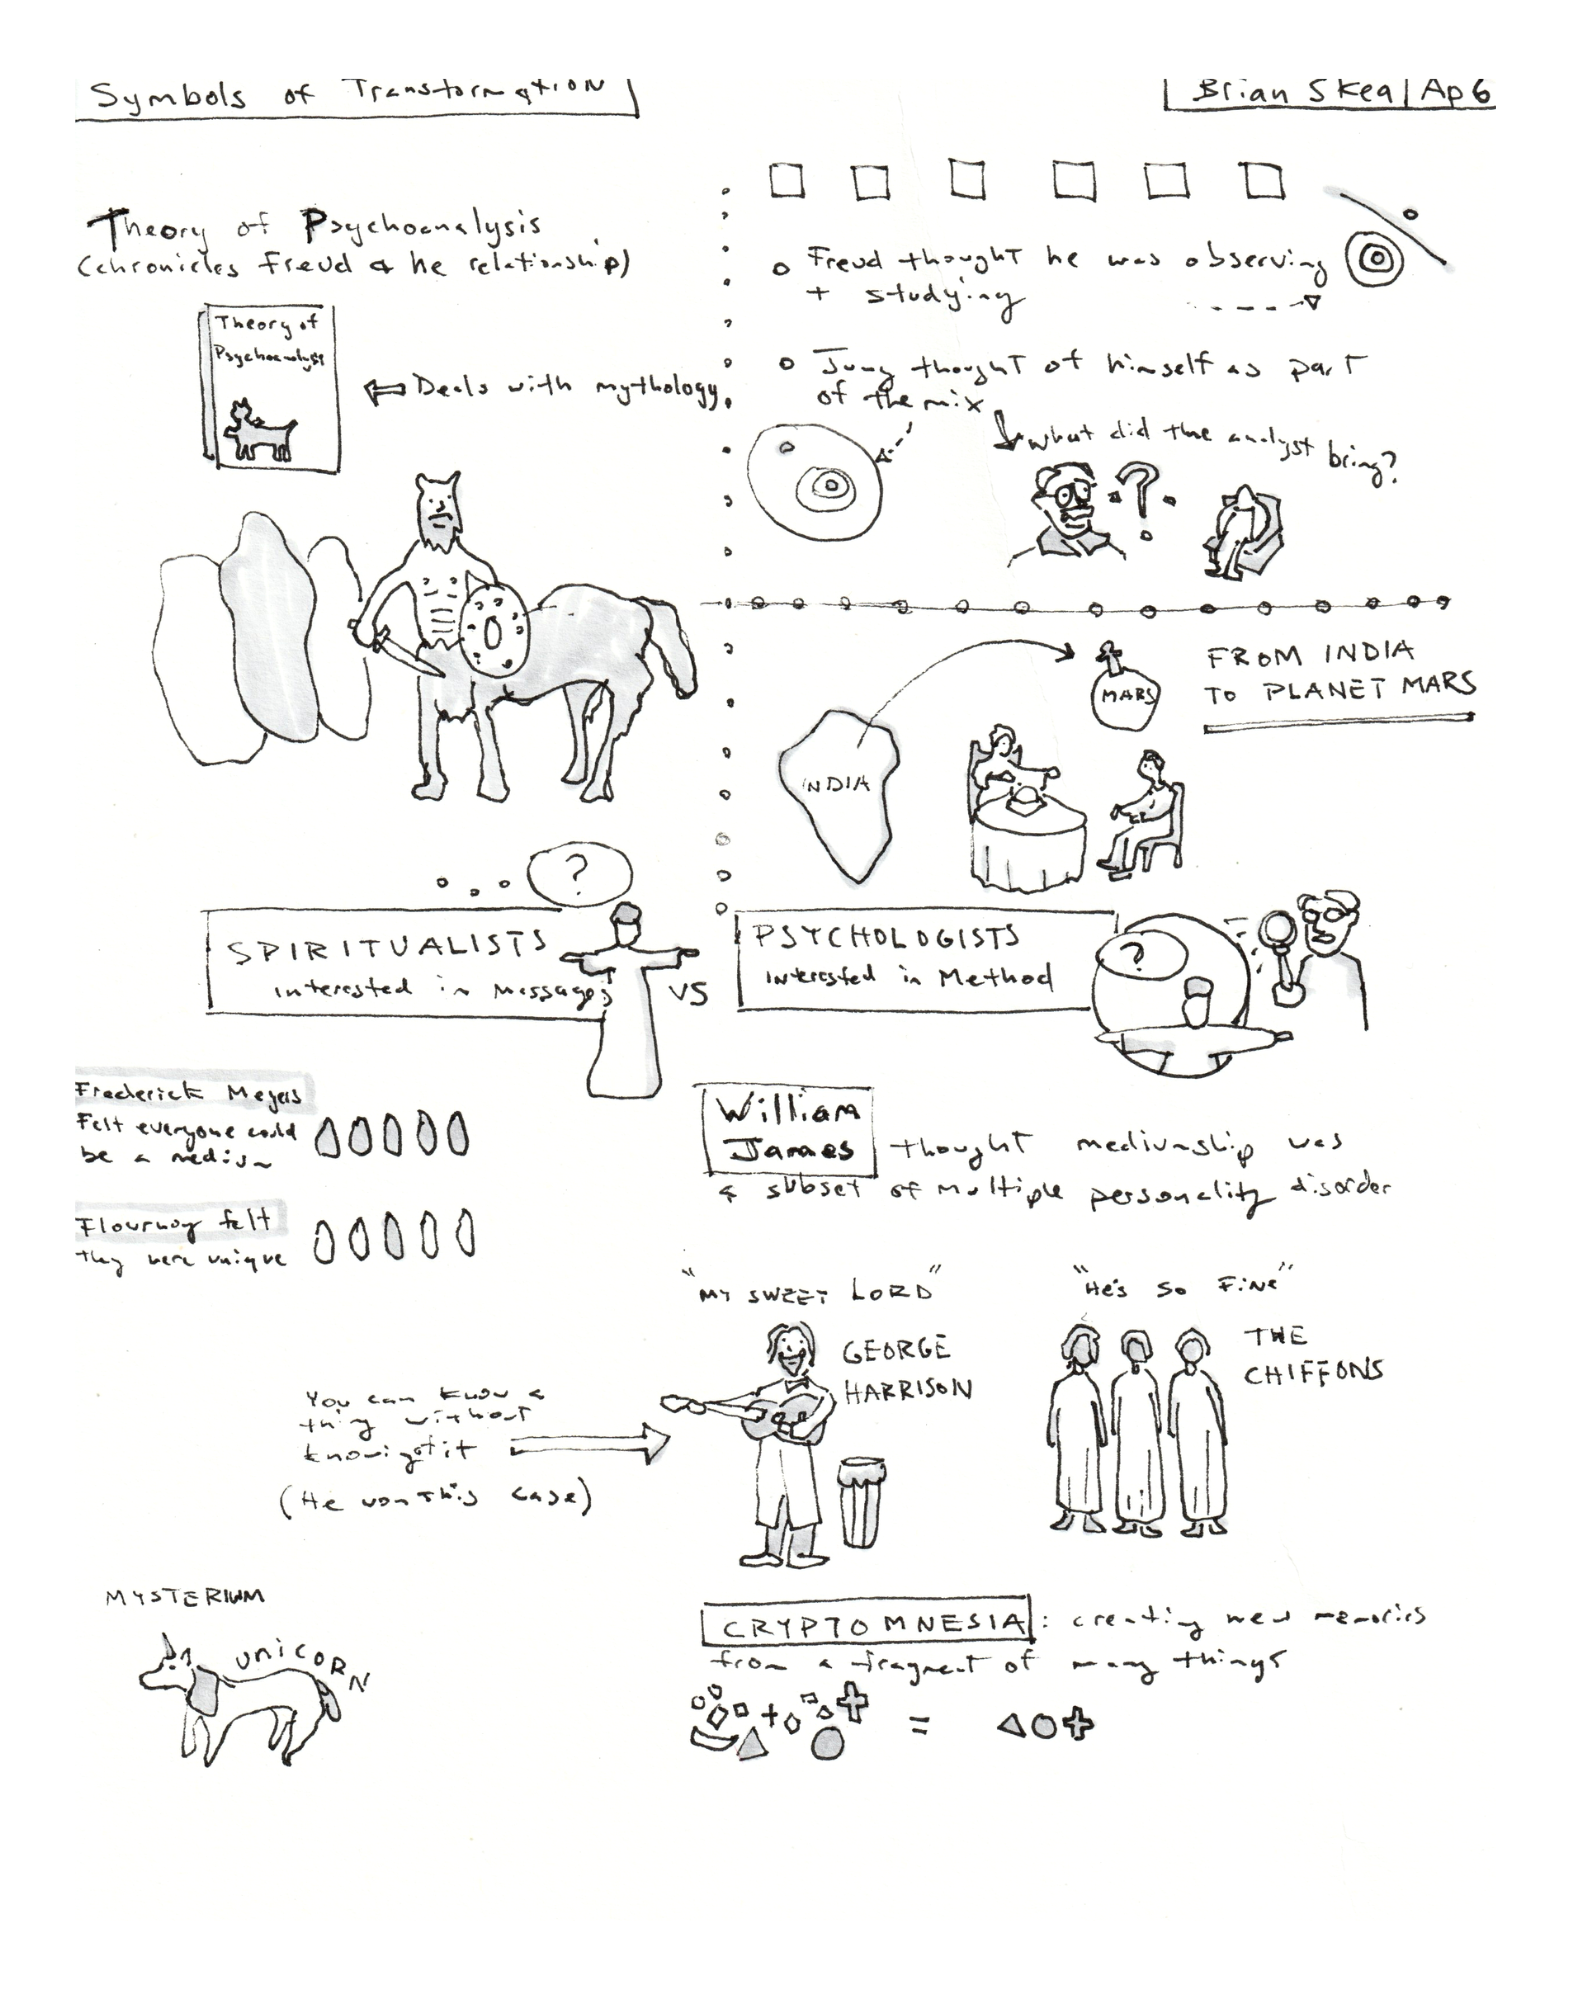 Symbols of Transformation
Brian Skea | Ap 6
Theory of Psychoanalysis
(chronicles Freud & he relationship)
Theory of
Psychoanalysis
Deals with mythology
Freud thought he was observing
+ studying
Jung thought of himself as part
of the mix
what did the analyst bring?
?
FROM INDIA
TO PLANET MARS
MARS
INDIA
?
SPIRITUALISTS
interested in messages
VS
PSYCHOLOGISTS
interested in Method
?
Frederick Meyers
Felt everyone could
be a medium
Flournoy felt
they were unique
William
James thought mediumship was
a subset of multiple personality disorder
"MY SWEET LORD"
GEORGE
HARRISON
"He's So Fine"
THE
CHIFFONS
You can know a
thing without
knowing of it
(He won this case)
MYSTERIUM
UNICORN
CRYPTOMNESIA: creating new memories
from a fragment of many things
+ =